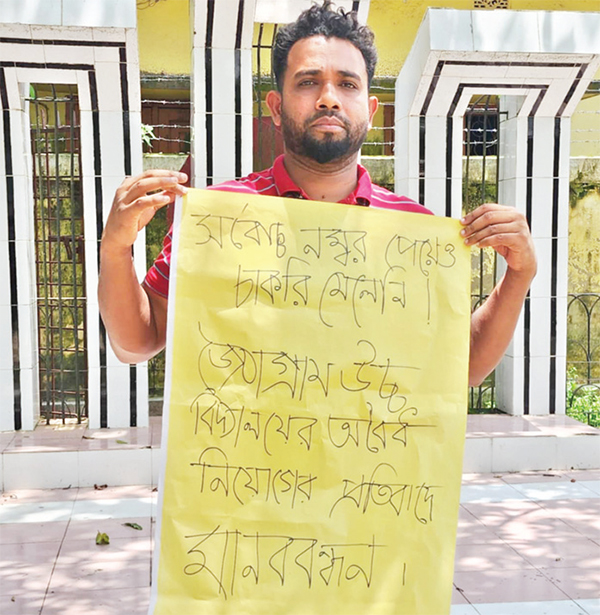 সর্বোচ্চ নম্বর পেয়েও
চাকরি মেলেনি।
উচ্চ
বিদ্যালয়ের অবৈধ
নিয়োগের প্রতিবাদে
মানববন্ধন।